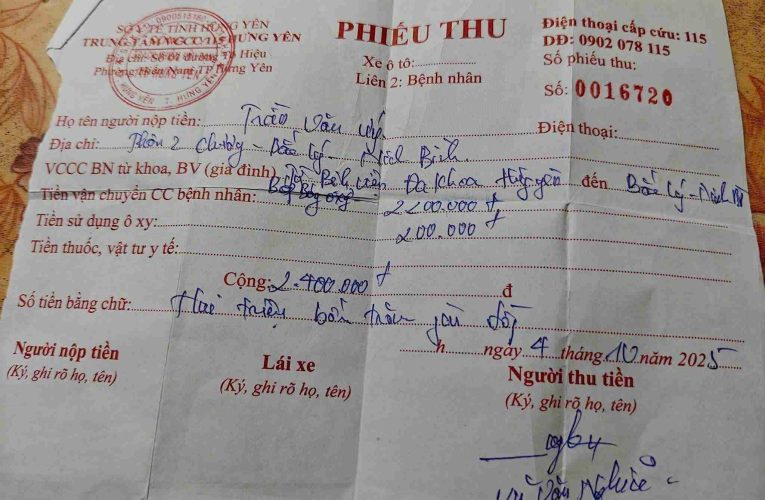 SỞ Y TẾ TỈNH HƯNG YÊN
TRUNG TÂM VCCC 115 HƯNG YÊN
Địa chỉ: Số 01 đường Tô Hiệu
Phường Hiến Nam TP Hưng Yên
PHIẾU THU
Xe ô tô:
Liên 2: Bệnh nhân
Điện thoại cấp cứu: 115
DĐ: 0902 078 115
Số phiếu thu:
Số: 0016720
Họ tên người nộp tiền: Trần Văn
Điện thoại:
Địa chỉ: Thôn 2 - Bắc Lý - Ninh Bình
VCCC BN từ khoa, BV (gia đình) Bệnh viện Đa khoa Hưng Yên đến Bắc Lý - Ninh
Tiền vận chuyển CC bệnh nhân: 2200.000đ
Tiền sử dụng ô xy: 200.000đ
Tiền thuốc, vật tư y tế:
Cộng: 2.400.000đ đ
Số tiền bằng chữ: Hai triệu bốn trăm đồng
h ngày 4 tháng 10 năm 2025
Người nộp tiền
(Ký, ghi rõ họ, tên)
Lái xe
(Ký, ghi rõ họ, tên)
Người thu tiền
(Ký, ghi rõ họ, tên)
Văn